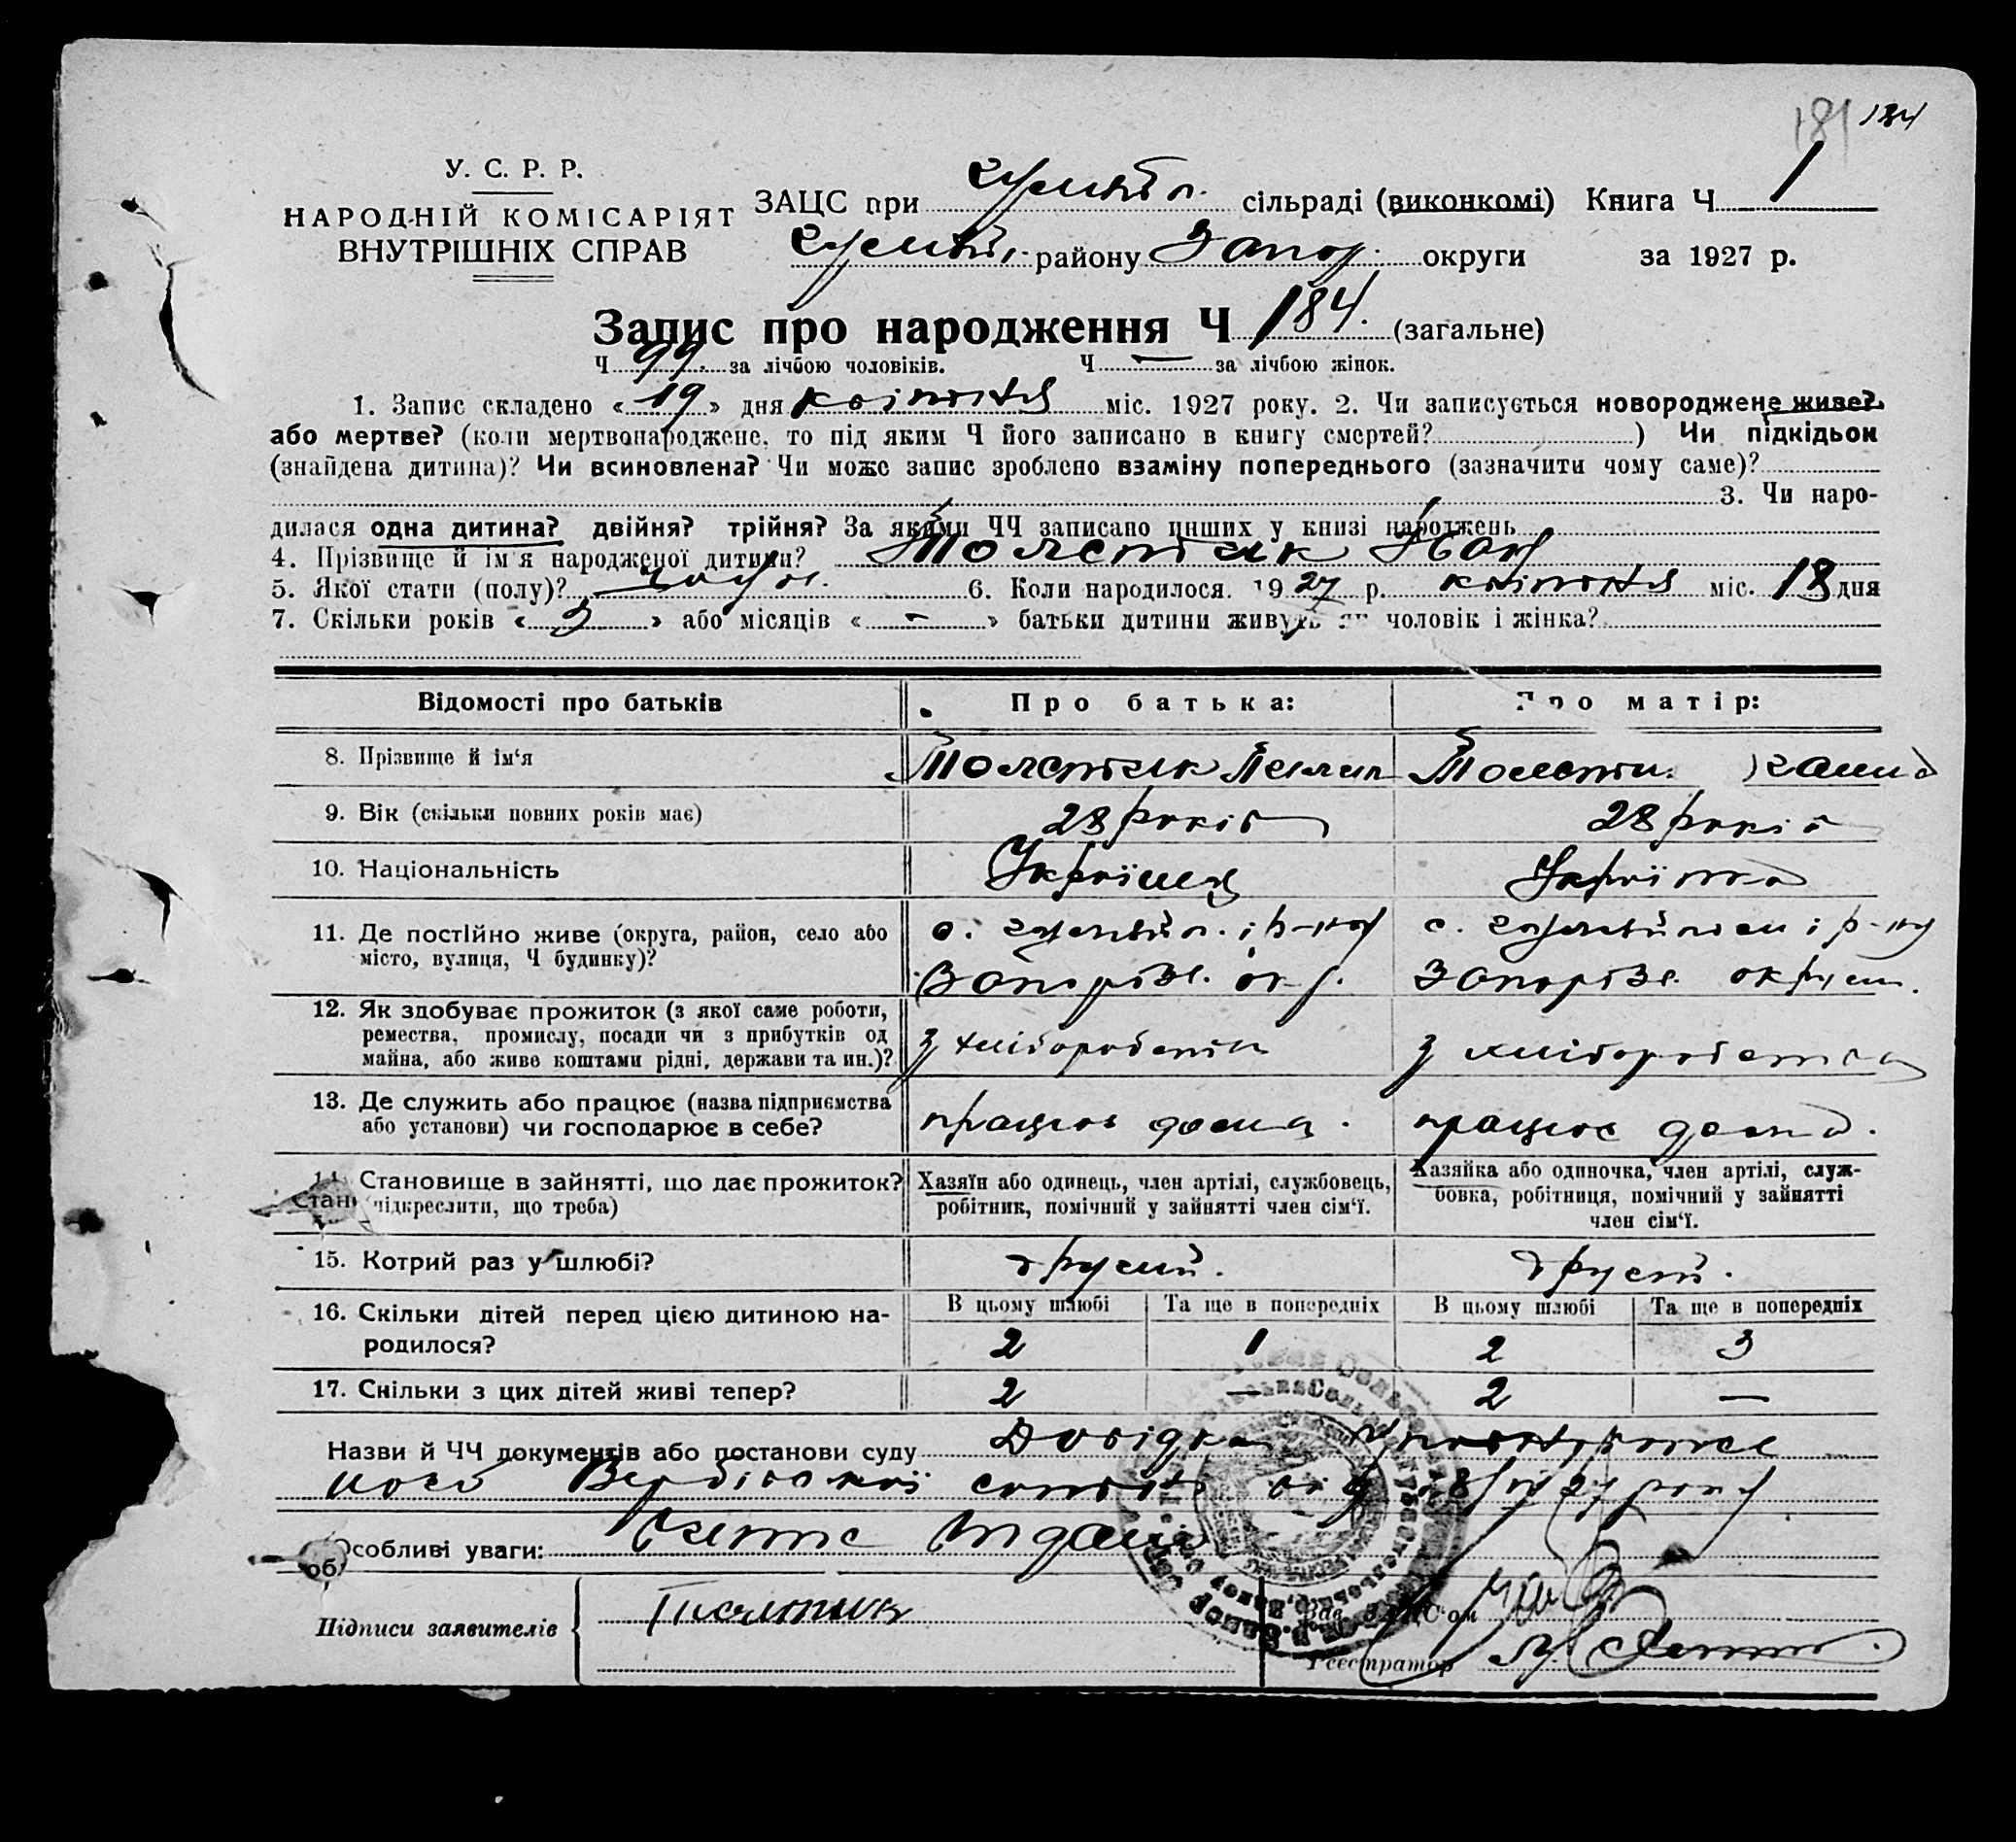 181 184
У. С. Р. Р.
НАРОДНІЙ КОМІСАРІЯТ
ВНУТРІШНІХ СПРАВ
ЗАЦС при Гуляйп. сільраді (виконкомі) Книга Ч 1
Гуляйп. району Запор. округи за 1927 р.
Запис про народження Ч 184. (загальне)
Ч 99. за лічбою чоловіків. Ч — за лічбою жінок.
1. Запис складено « 19 » дня квітня міс. 1927 року. 2. Чи записується новороджене живе?
або мертве? (коли мертвонароджене, то під яким Ч його записано в книгу смертей? ) Чи підкідьок
(знайдена дитина)? Чи всиновлена? Чи може запис зроблено взаміну попереднього (зазначити чому саме)?
3. Чи наро-
дилася одна дитина? двійня? трійня? За якими ЧЧ записано инших у книзі народжень
4. Прізвище й ім'я народженої дитини? Толстик Іван
5. Якої стати (полу)? чолов. 6. Коли народилося. 1927 р. квітня міс. 18 дня
7. Скільки років « 3 » або місяців « - » батьки дитини живуть як чоловік і жінка?
Відомості про батьків Про батька: Про матір:
8. Прізвище й ім'я Толстик Толсти.
9. Вік (скільки повних років має) 28 років 28 років
10. Національність Українець Українка
11. Де постійно живе (округа, район, село або с. Гуляйп. і р-ну с. Гуляйполе і р-ну
місто, вулиця, Ч будинку)? Запорізк. окр. Запорізк. округи.
12. Як здобуває прожиток (з якої саме роботи,
ремества, промислу, посади чи з прибутків од з хліборобства з хліборобства
майна, або живе коштами рідні, держави та ин.)?
13. Де служить або працює (назва підприємства
або установи) чи господарює в себе? працює дома. працює дома.
14. Становище в зайнятті, що дає прожиток? Хазяїн або одинець, член артілі, службовець, Хазяйка або одиночка, член артілі, служ-
(підкреслити, що треба) робітник, помічний у зайнятті член сім'ї. бовка, робітниця, помічний у зайнятті
член сім'ї.
15. Котрий раз у шлюбі? другий. другий.
16. Скільки дітей перед цією дитиною на- В цьому шлюбі Та ще в попередніх В цьому шлюбі Та ще в попередніх
родилося? 2 1 2 3
17. Скільки з цих дітей живі тепер? 2 — 2 —
Назви й ЧЧ документів або постанови суду Довідка
Вербівської сотні від 18/IV 27 року
Особливі уваги:
Підписи заявителів Толстик Зав. ЗАЦС'ом
Реєстратор